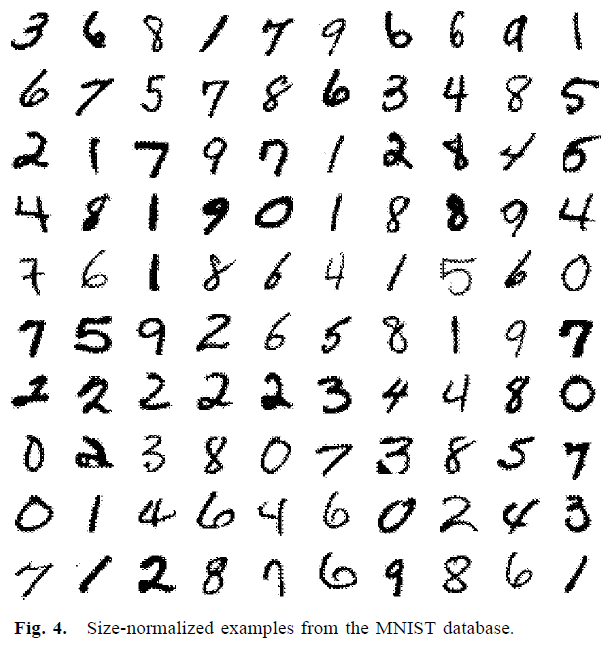 3 6 8 1 7 9 6 6 9 1
6 7 5 7 8 6 3 4 8 5
2 1 7 9 7 1 2 8 4 5
4 8 1 9 0 1 8 8 9 4
7 6 1 8 6 4 1 5 6 0
7 5 9 2 6 5 8 1 9 7
2 2 2 2 2 3 4 4 8 0
0 2 3 8 0 7 3 8 5 7
0 1 4 6 4 6 0 2 4 3
7 1 2 8 7 6 9 8 6 1
Fig. 4. Size-normalized examples from the MNIST database.